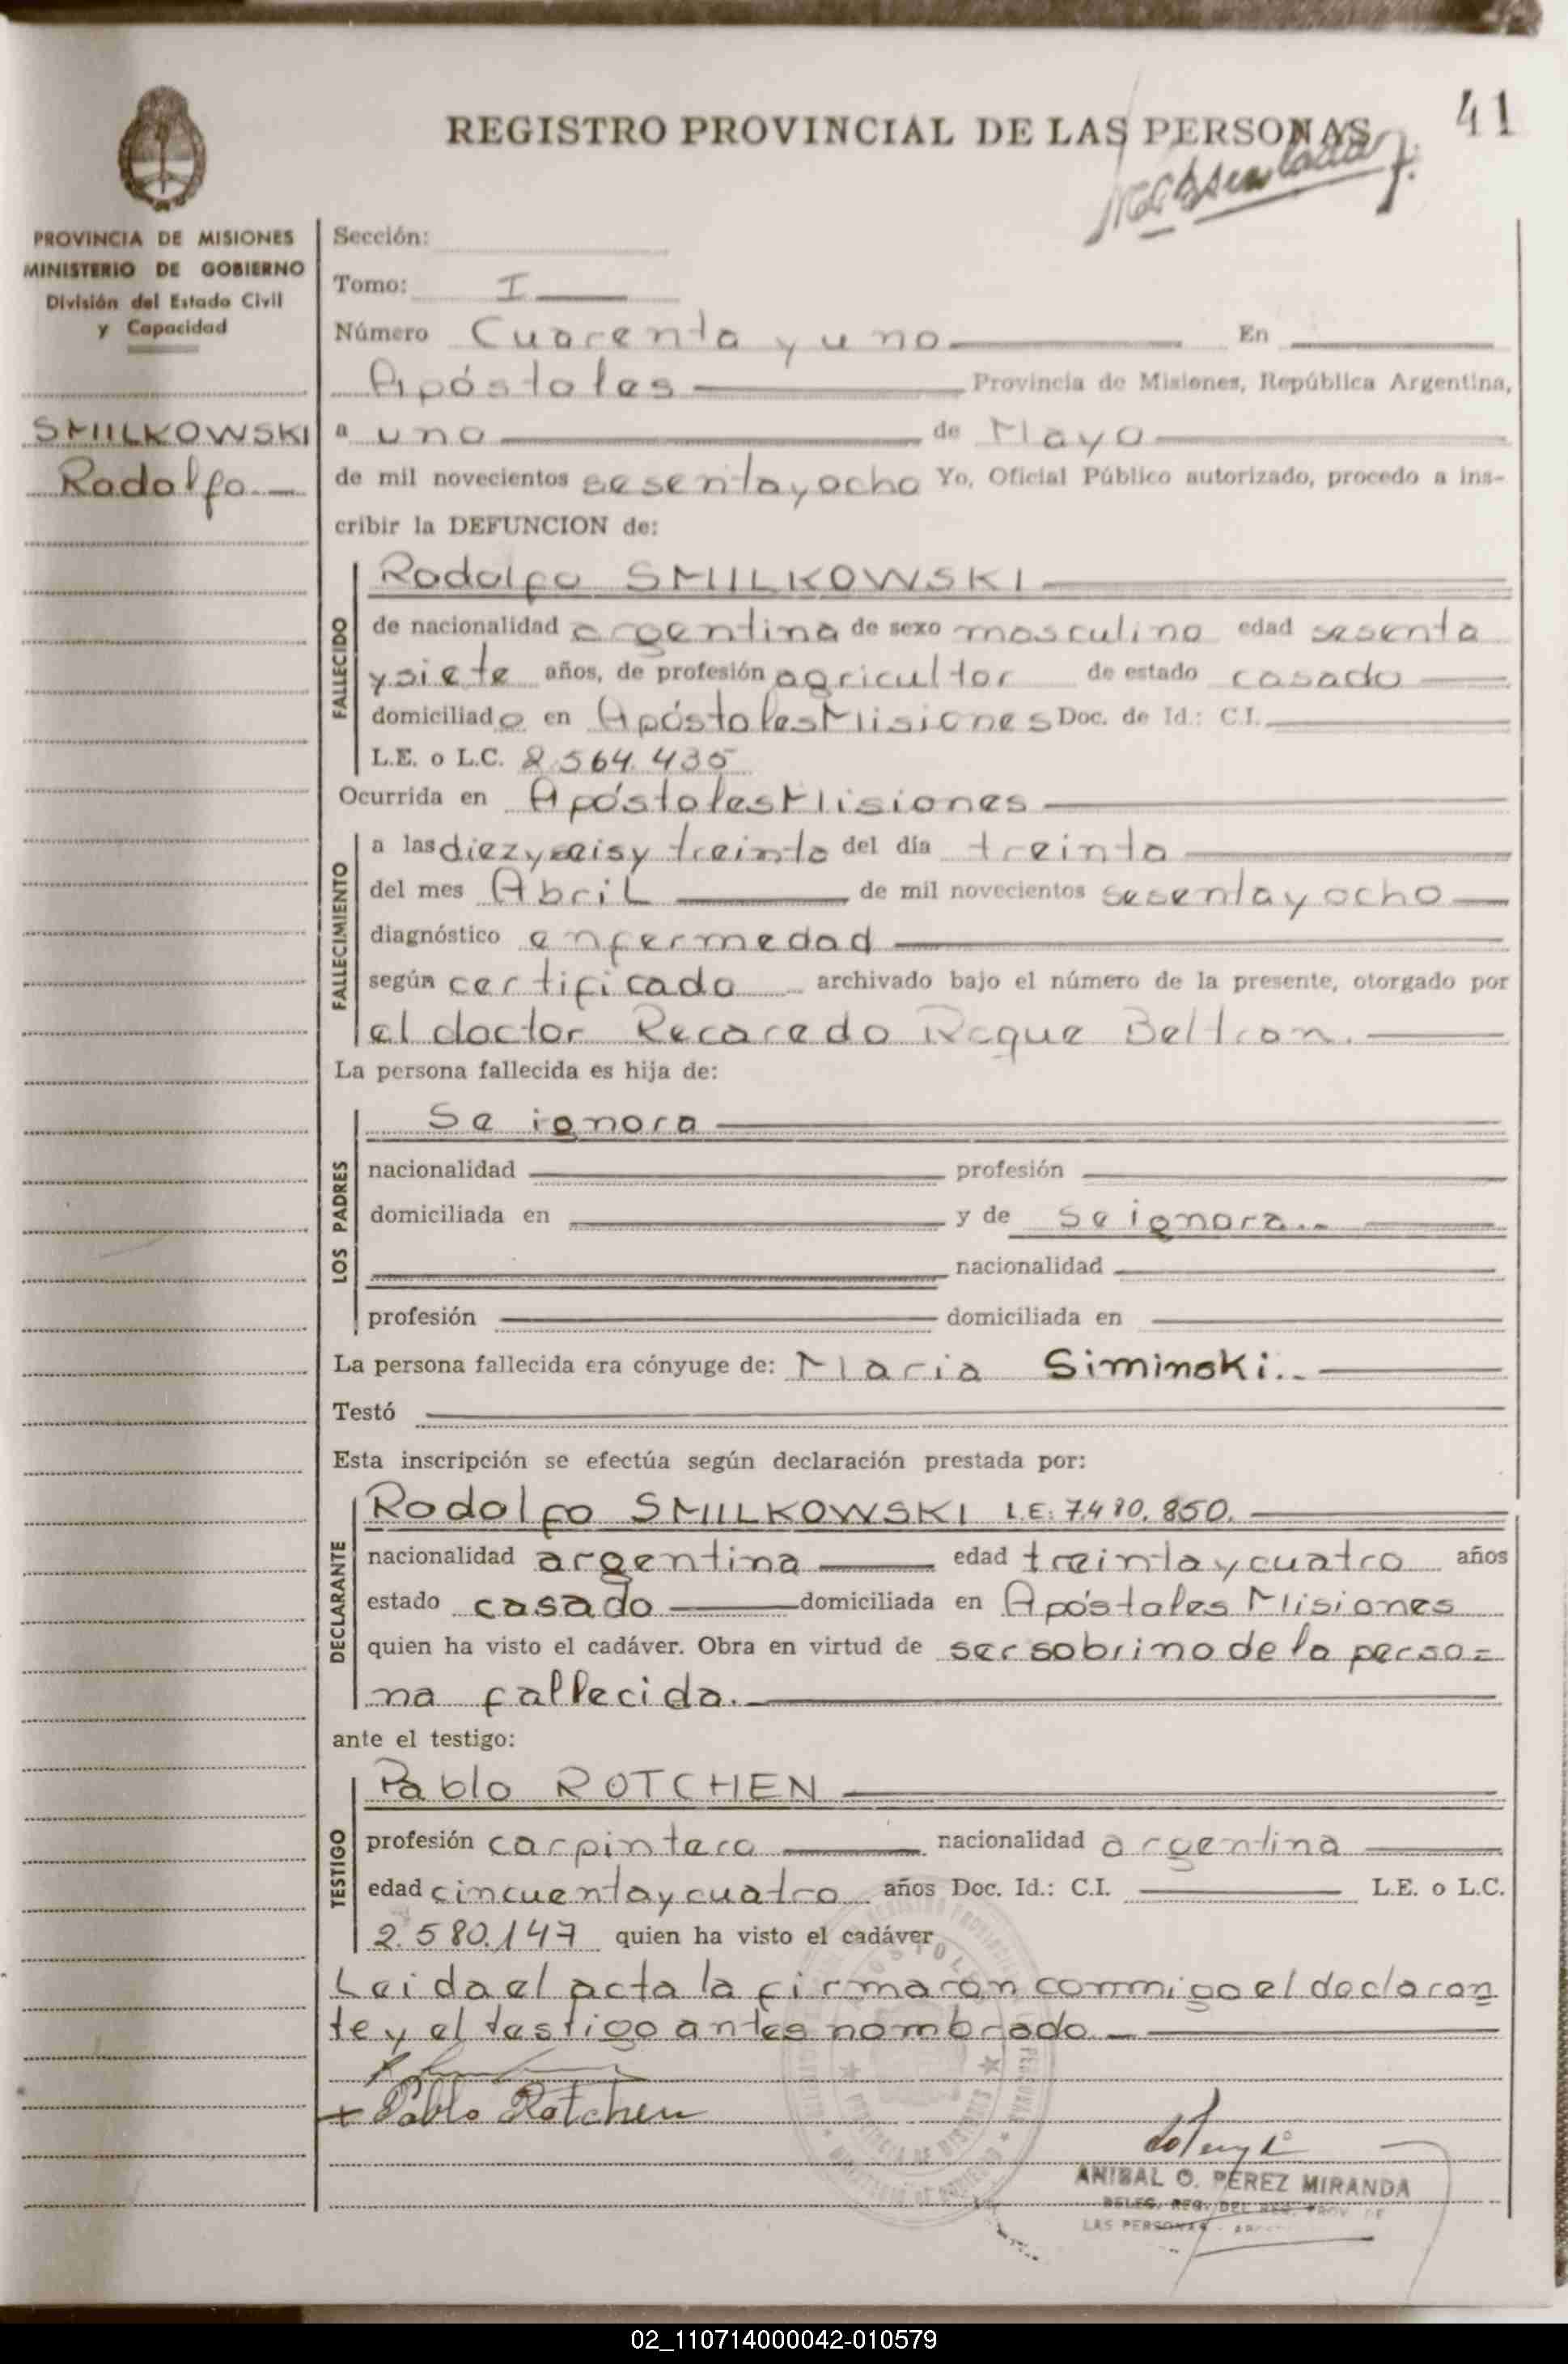 REGISTRO PROVINCIAL DE LAS PERSONAS
41
PROVINCIA DE MISIONES
MINISTERIO DE GOBIERNO
División del Estado Civil
y Capacidad
SMILKOWSKI
Rodolfo.—
Sección:
Tomo: I
Número Cuarenta y uno En
Apóstoles Provincia de Misiones, República Argentina,
a uno de Mayo
de mil novecientos sesenta y ocho Yo, Oficial Público autorizado, procedo a ins-
cribir la DEFUNCION de:
FALLECIDO
Rodolfo SMILKOWSKI
de nacionalidad argentina de sexo masculino edad sesenta
y siete años, de profesión agricultor de estado casado
domiciliado en Apóstoles Misiones Doc. de Id.: C.I.
L.E. o L.C. 2.564.435
Ocurrida en Apóstoles Misiones
FALLECIMIENTO
a las diez y seis y treinta del día treinta
del mes Abril de mil novecientos sesenta y ocho
diagnóstico enfermedad
según certificado archivado bajo el número de la presente, otorgado por
el doctor Recaredo Roque Beltran.
La persona fallecida es hija de:
LOS PADRES
Se ignora
nacionalidad profesión
domiciliada en y de se ignora..
nacionalidad
profesión domiciliada en
La persona fallecida era cónyuge de: Maria Siminski..
Testó
Esta inscripción se efectúa según declaración prestada por:
DECLARANTE
Rodolfo SMILKOWSKI L.E: 7.480.850.
nacionalidad argentina edad treinta y cuatro años
estado casado domiciliada en Apóstoles Misiones
quien ha visto el cadáver. Obra en virtud de ser sobrino de la perso=
na fallecida.
ante el testigo:
TESTIGO
Pablo ROTCHEN
profesión carpintero nacionalidad argentina
edad cincuenta y cuatro años Doc. Id.: C.I. L.E. o L.C.
2.580.147 quien ha visto el cadáver
Leida el acta la firmaron conmigo el declaran
te y el testigo antes nombrado.—
Pablo Rotchen
ANIBAL O. PEREZ MIRANDA
LAS PERSONAS
02_110714000042-010579